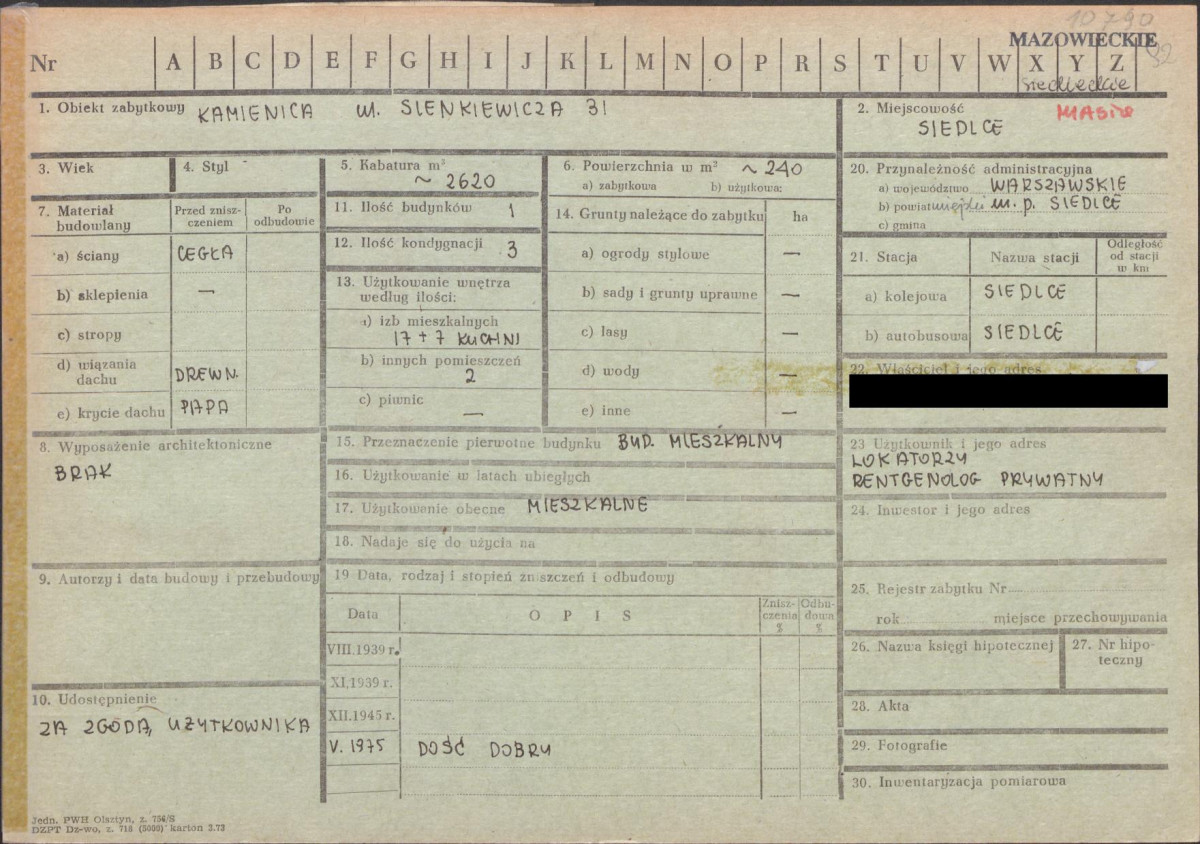 10790
MAZOWIECKIE
92
Nr A B C D E F G H I J K L M N O P R S T U V W X Y Z
siedleckie
1. Obiekt zabytkowy KAMIENICA ul. SIENKIEWICZA 31
2. Miejscowość MIASTO
SIEDLCE
3. Wiek
4. Styl
5. Kabatura m³
~ 2620
6. Powierzchnia w m³ ~ 240
a) zabytkowa b) użytkowa:
20. Przynależność administracyjna
a) województwo WARSZAWSKIE
b) powiat miejski m. p. SIEDLCE
c) gmina
7. Materiał budowlany
Przed zniszczeniem
Po odbudowie
a) ściany CEGŁA
b) sklepienia —
c) stropy
d) wiązania dachu DREWN.
e) krycie dachu PAPA
11. Ilość budynków 1
12. Ilość kondygnacji 3
13. Użytkowanie wnętrza
według ilości:
a) izb mieszkalnych
17 + 7 KUCHNI
b) innych pomieszczeń
2
c) piwnic —
14. Grunty należące do zabytku ha
a) ogrody stylowe —
b) sady i grunty uprawne —
c) lasy —
d) wody —
e) inne —
21. Stacja Nazwa stacji Odległość od stacji w km
a) kolejowa SIEDLCE
b) autobusowa SIEDLCE
22. Właściciel i jego adres
8. Wyposażenie architektoniczne
BRAK
15. Przeznaczenie pierwotne budynku BUD. MIESZKALNY
16. Użytkowanie w latach ubiegłych
17. Użytkowanie obecne MIESZKALNE
18. Nadaje się do użycia na
23 Użytkownik i jego adres
LOKATORZY
RENTGENOLOG PRYWATNY
24. Inwestor i jego adres
9. Autorzy i data budowy i przebudowy
19 Data, rodzaj i stopień zniszczeń i odbudowy
Data O P I S Zniszczenia % Odbudowa %
VIII.1939 r.
XI.1939 r.
XII.1945 r.
V. 1975 DOŚĆ DOBRY
25. Rejestr zabytku Nr
rok miejsce przechowywania
26. Nazwa księgi hipotecznej
27. Nr hipoteczny
10. Udostępnienie
ZA ZGODĄ UŻYTKOWNIKA
28. Akta
29. Fotografie
30. Inwentaryzacja pomiarowa
Jedn. PWH Olsztyn, z. 756/S
DZPT Dz-wo, z. 718 (5000) karton 3.73